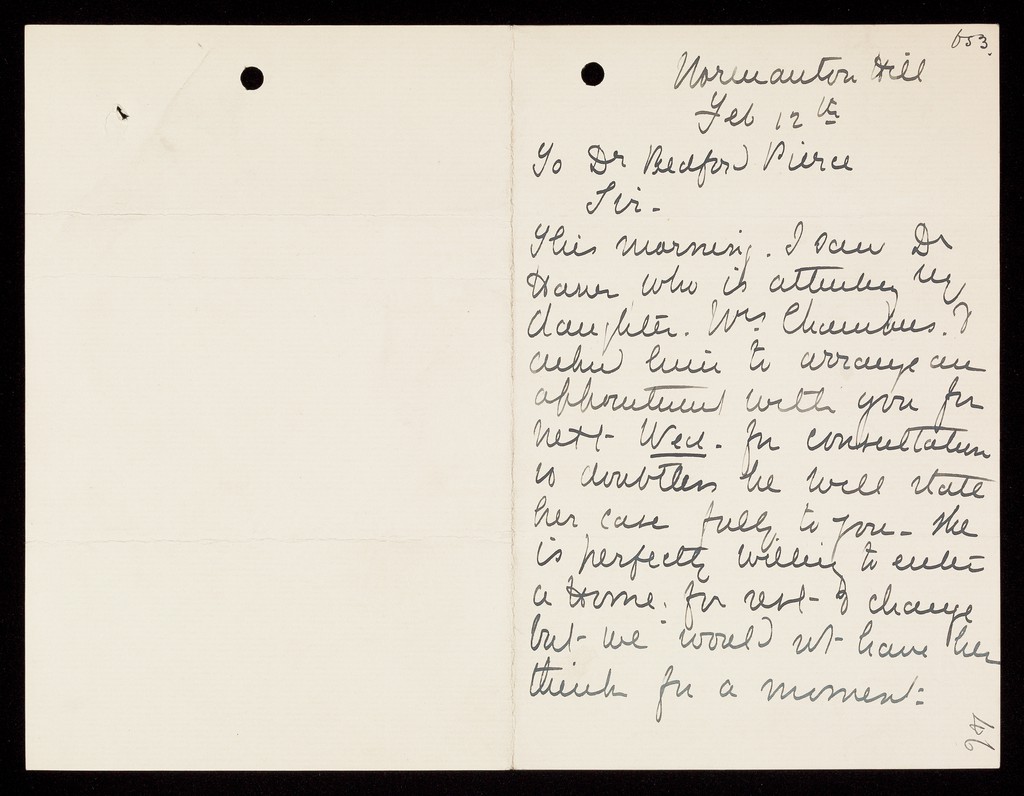 653.
Normanton Hill
Feb 12th
To Dr Bedford Pierce
Sir -
This morning. I saw Dr
who is attending my
daughter. Mrs Chambers. I
asked him to arrange an
appointment with you for
next Wed. for consultation
so doubtless he will state
her case fully to you - she
is perfectly willing to enter
a Home. for rest & change
but we would not have her
think for a moment: